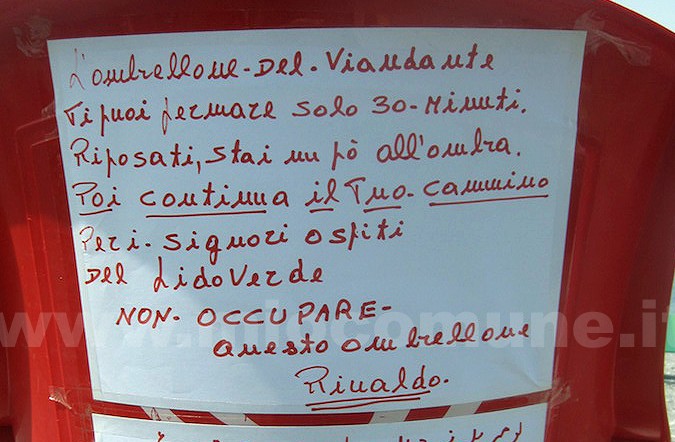 L'ombrellone-Del-Viandante
Ti puoi fermare solo 30-Minuti.
Riposati, stai un pò all'ombra.
Poi continua il Tuo-cammino
Per i-signori ospiti
Del Lido Verde
NON-OCCUPARE-
questo ombrellone
Rinaldo.
www.infocomune.it